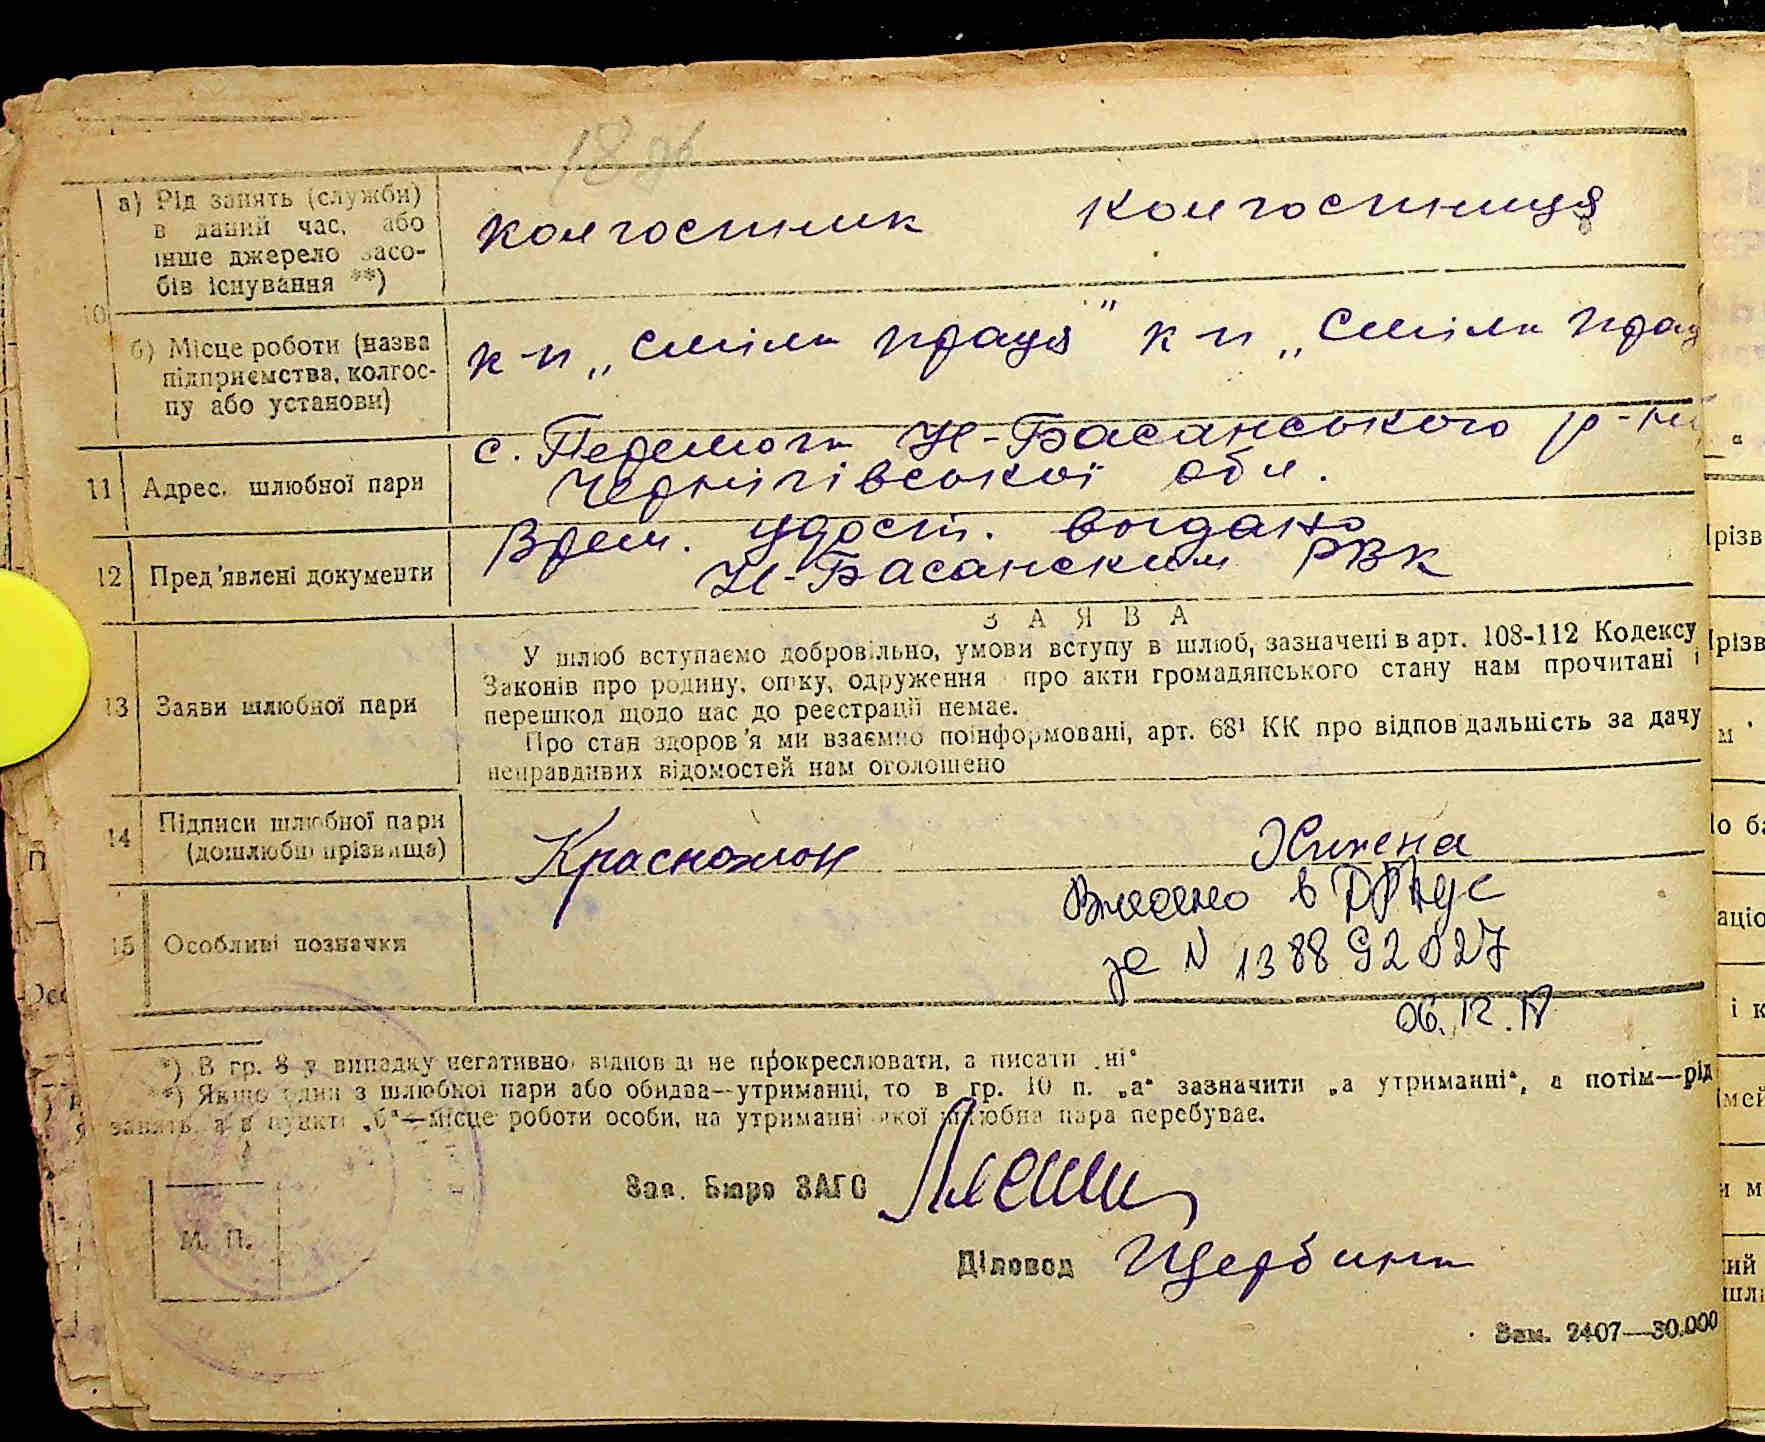 а) Рід занять (служби) в даний час, або інше джерело засобів існування **)
колгоспник колгоспниця
10
б) Місце роботи (назва підприємства, колгоспу або установи)
к-п „Сміла праця" к-п „Сміла прац
11 Адрес. шлюбної пари
с. Перемога Н-Басанського р-ну
Чернігівської обл.
12 Пред'явлені документи
Врем. удост. выдано
Н-Басанским РВК
ЗАЯВА
13 Заяви шлюбної пари
У шлюб вступаємо добровільно, умови вступу в шлюб, зазначені в арт. 108-112 Кодексу
Законів про родину, опіку, одруження і про акти громадянського стану нам прочитані і
перешкод щодо нас до реєстрації немає.
Про стан здоров'я ми взаємно поінформовані, арт. 68¹ КК про відповідальність за дачу
неправдивих відомостей нам оголошено
14 Підписи шлюбної пари
(дошлюбні прізвища)
Красножон Хижена
15 Особливі позначки
Внесено в ДРАЦС
за N 138892027
06.12.17
*) В гр. 8 у випадку негативної відповіді не прокреслювати, а писати „ні"
**) Якщо один з шлюбної пари або обидва—утриманці, то в гр. 10 п. „а" зазначити „а утриманні", а потім—рід
занять, а в пункті „б"—місце роботи особи, на утриманні якої шлюбна пара перебуває.
Зав. Бюро ЗАГС
М. П.
Діловод Щербина
Зам. 2407—30.000